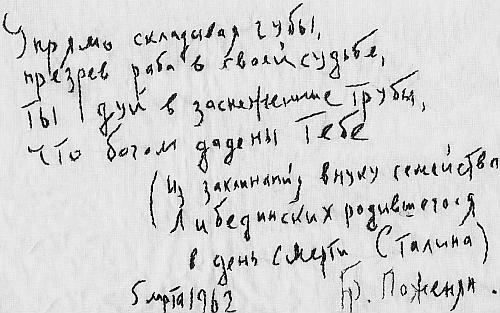 Упрямо складывая губы,
презрев раба в своей судьбе,
ты дуй в заснеженные трубы,
что богом дадены тебе
(Из заклинаний внуку семейства
Либединских родившегося
в день смерти Сталина)
5 марта 1962 Гр. Поженян.